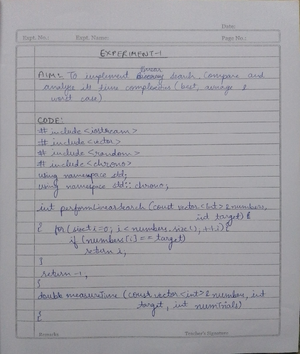 Date:
Expt. No.: Expt. Name: Page No.:
EXPERIMENT-1
linear
AIM: To implement search. Compare and
analyse its time complexities (best, average &
worst case)
CODE:
# include <iostream>
# include <vector>
# include <random>
# include <chrono>
using namespace std;
using namespace std::chrono;
int performLinearSearch (const vector<int> & numbers,
int target) {
{ for (size_t i=0; i < numbers.size(); ++i) {
if (numbers[i] == target)
return i;
}
return -1;
}
double measureTime (const vector<int> & number, int
target, int numTrials)
{
Remarks Teacher's Signature